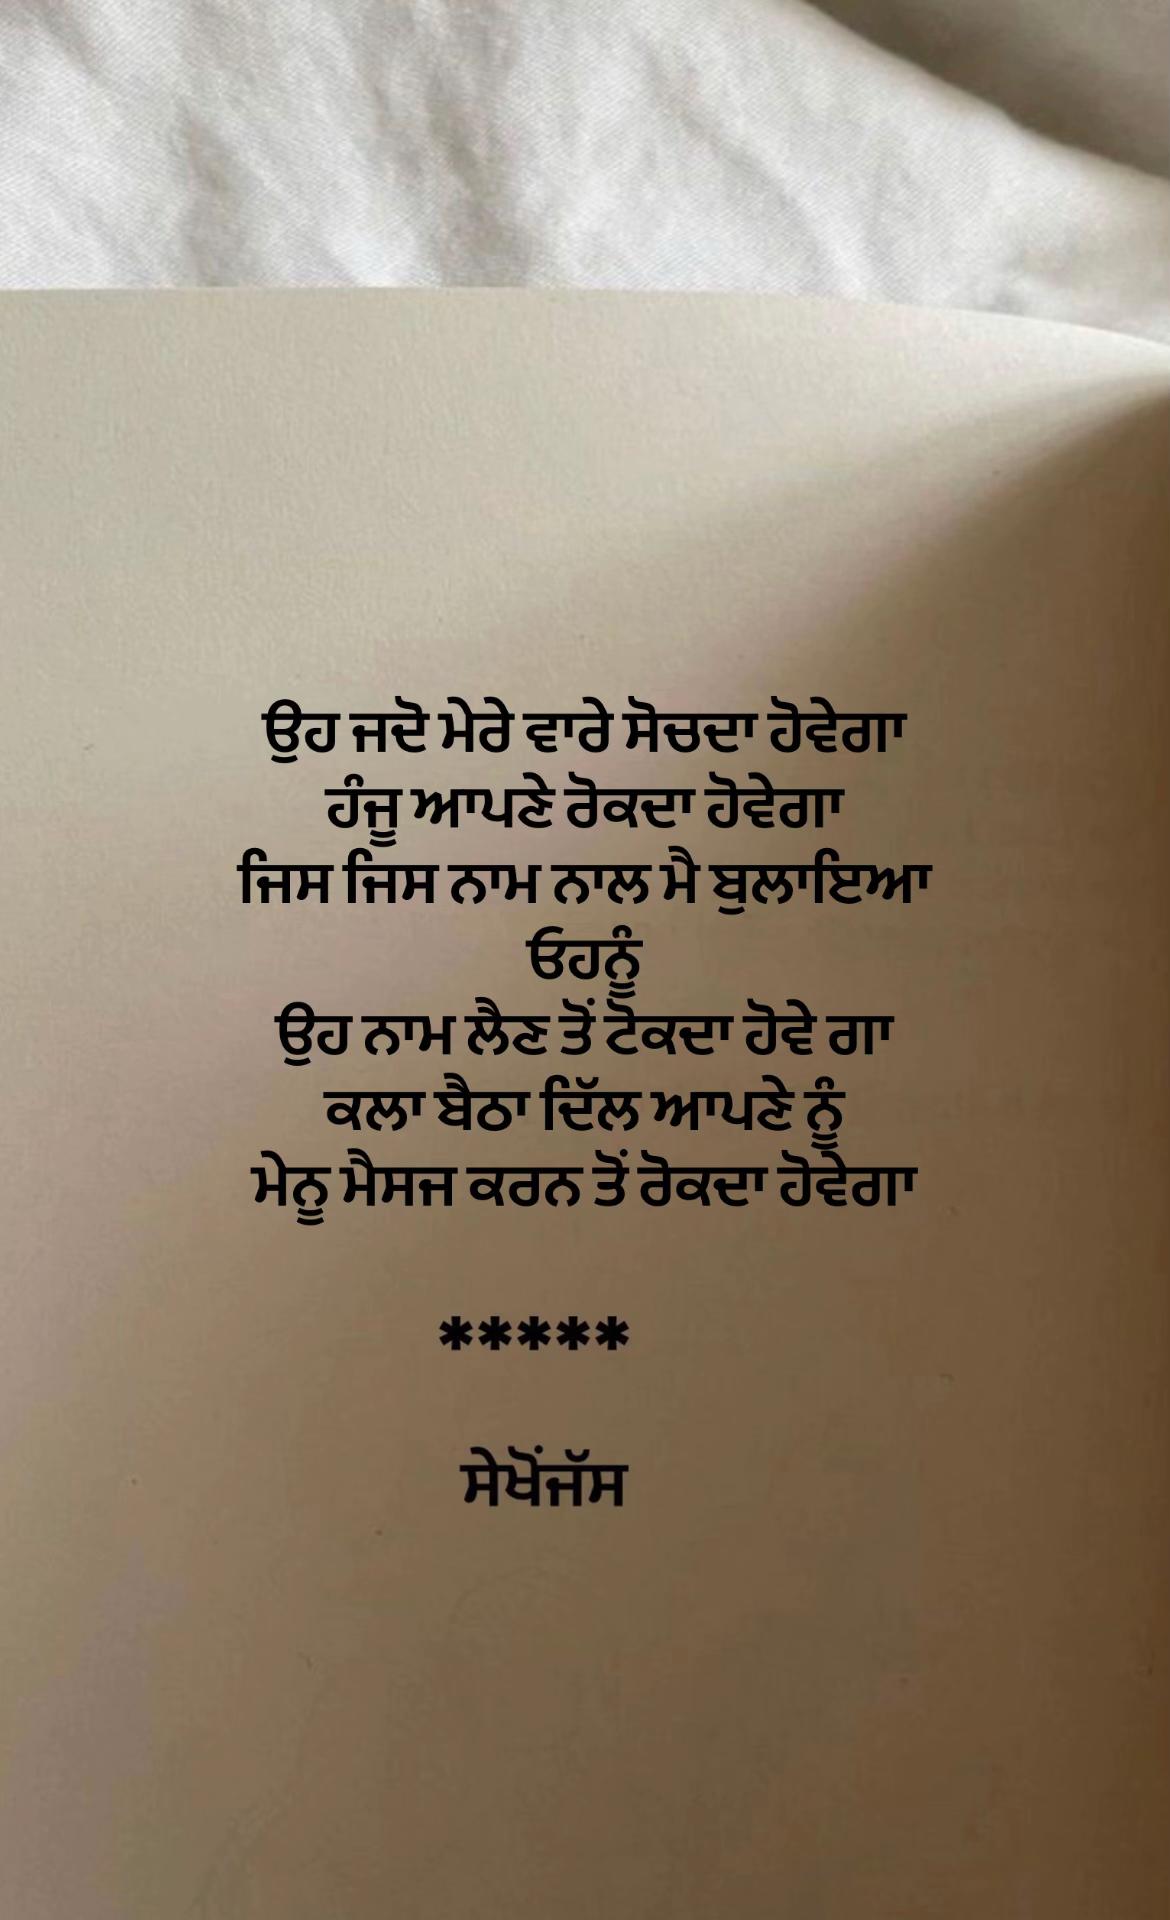 ਉਹ ਜਦੋ ਮੇਰੇ ਵਾਰੇ ਸੋਚਦਾ ਹੋਵੇਗਾ
ਹੰਜੂ ਆਪਣੇ ਰੋਕਦਾ ਹੋਵੇਗਾ
ਜਿਸ ਜਿਸ ਨਾਮ ਨਾਲ ਮੈ ਬੁਲਾਇਆ
ਓਹਨੂੰ
ਉਹ ਨਾਮ ਲੈਣ ਤੋਂ ਟੋਕਦਾ ਹੋਵੇ ਗਾ
ਕਲਾ ਬੈਠਾ ਦਿੱਲ ਆਪਣੇ ਨੂੰ
ਮੇਨੂ ਮੈਸਜ ਕਰਨ ਤੋਂ ਰੋਕਦਾ ਹੋਵੇਗਾ
*****
ਸੇਖੋਂਜੱਸ